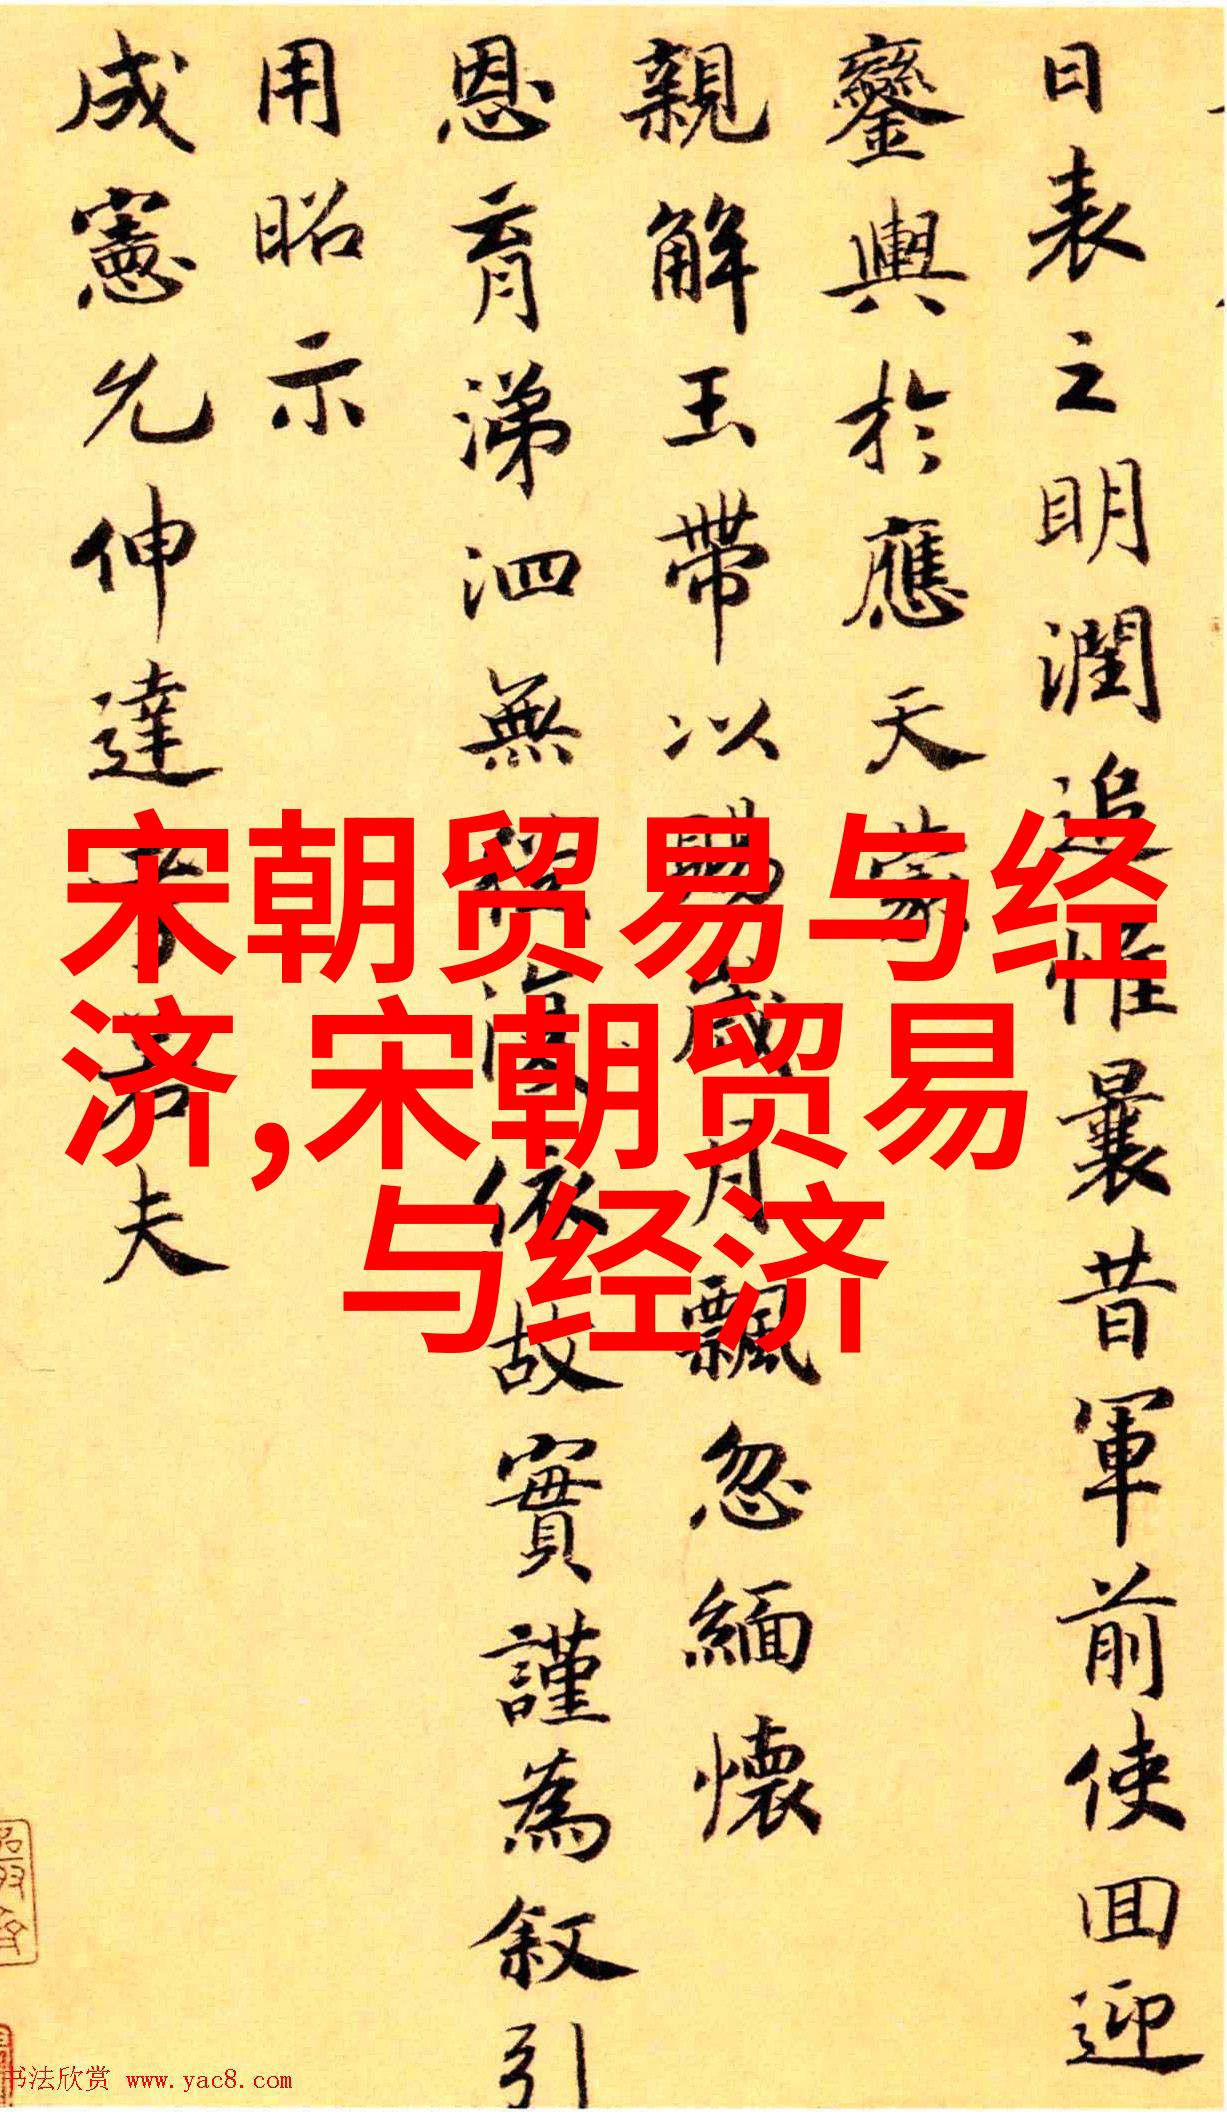 日表之明潤追惟曩昔軍前使回迎
鑾輿於應天蒙
親解玉帶以賜歲月飄忽緬懷
恩育涕泗無依故實謹為叙引
用昭示
成憲允伸達孝若夫
宋朝贸易与经
济,宋朝贸易
与经济
书法欣赏 www.yac8.com